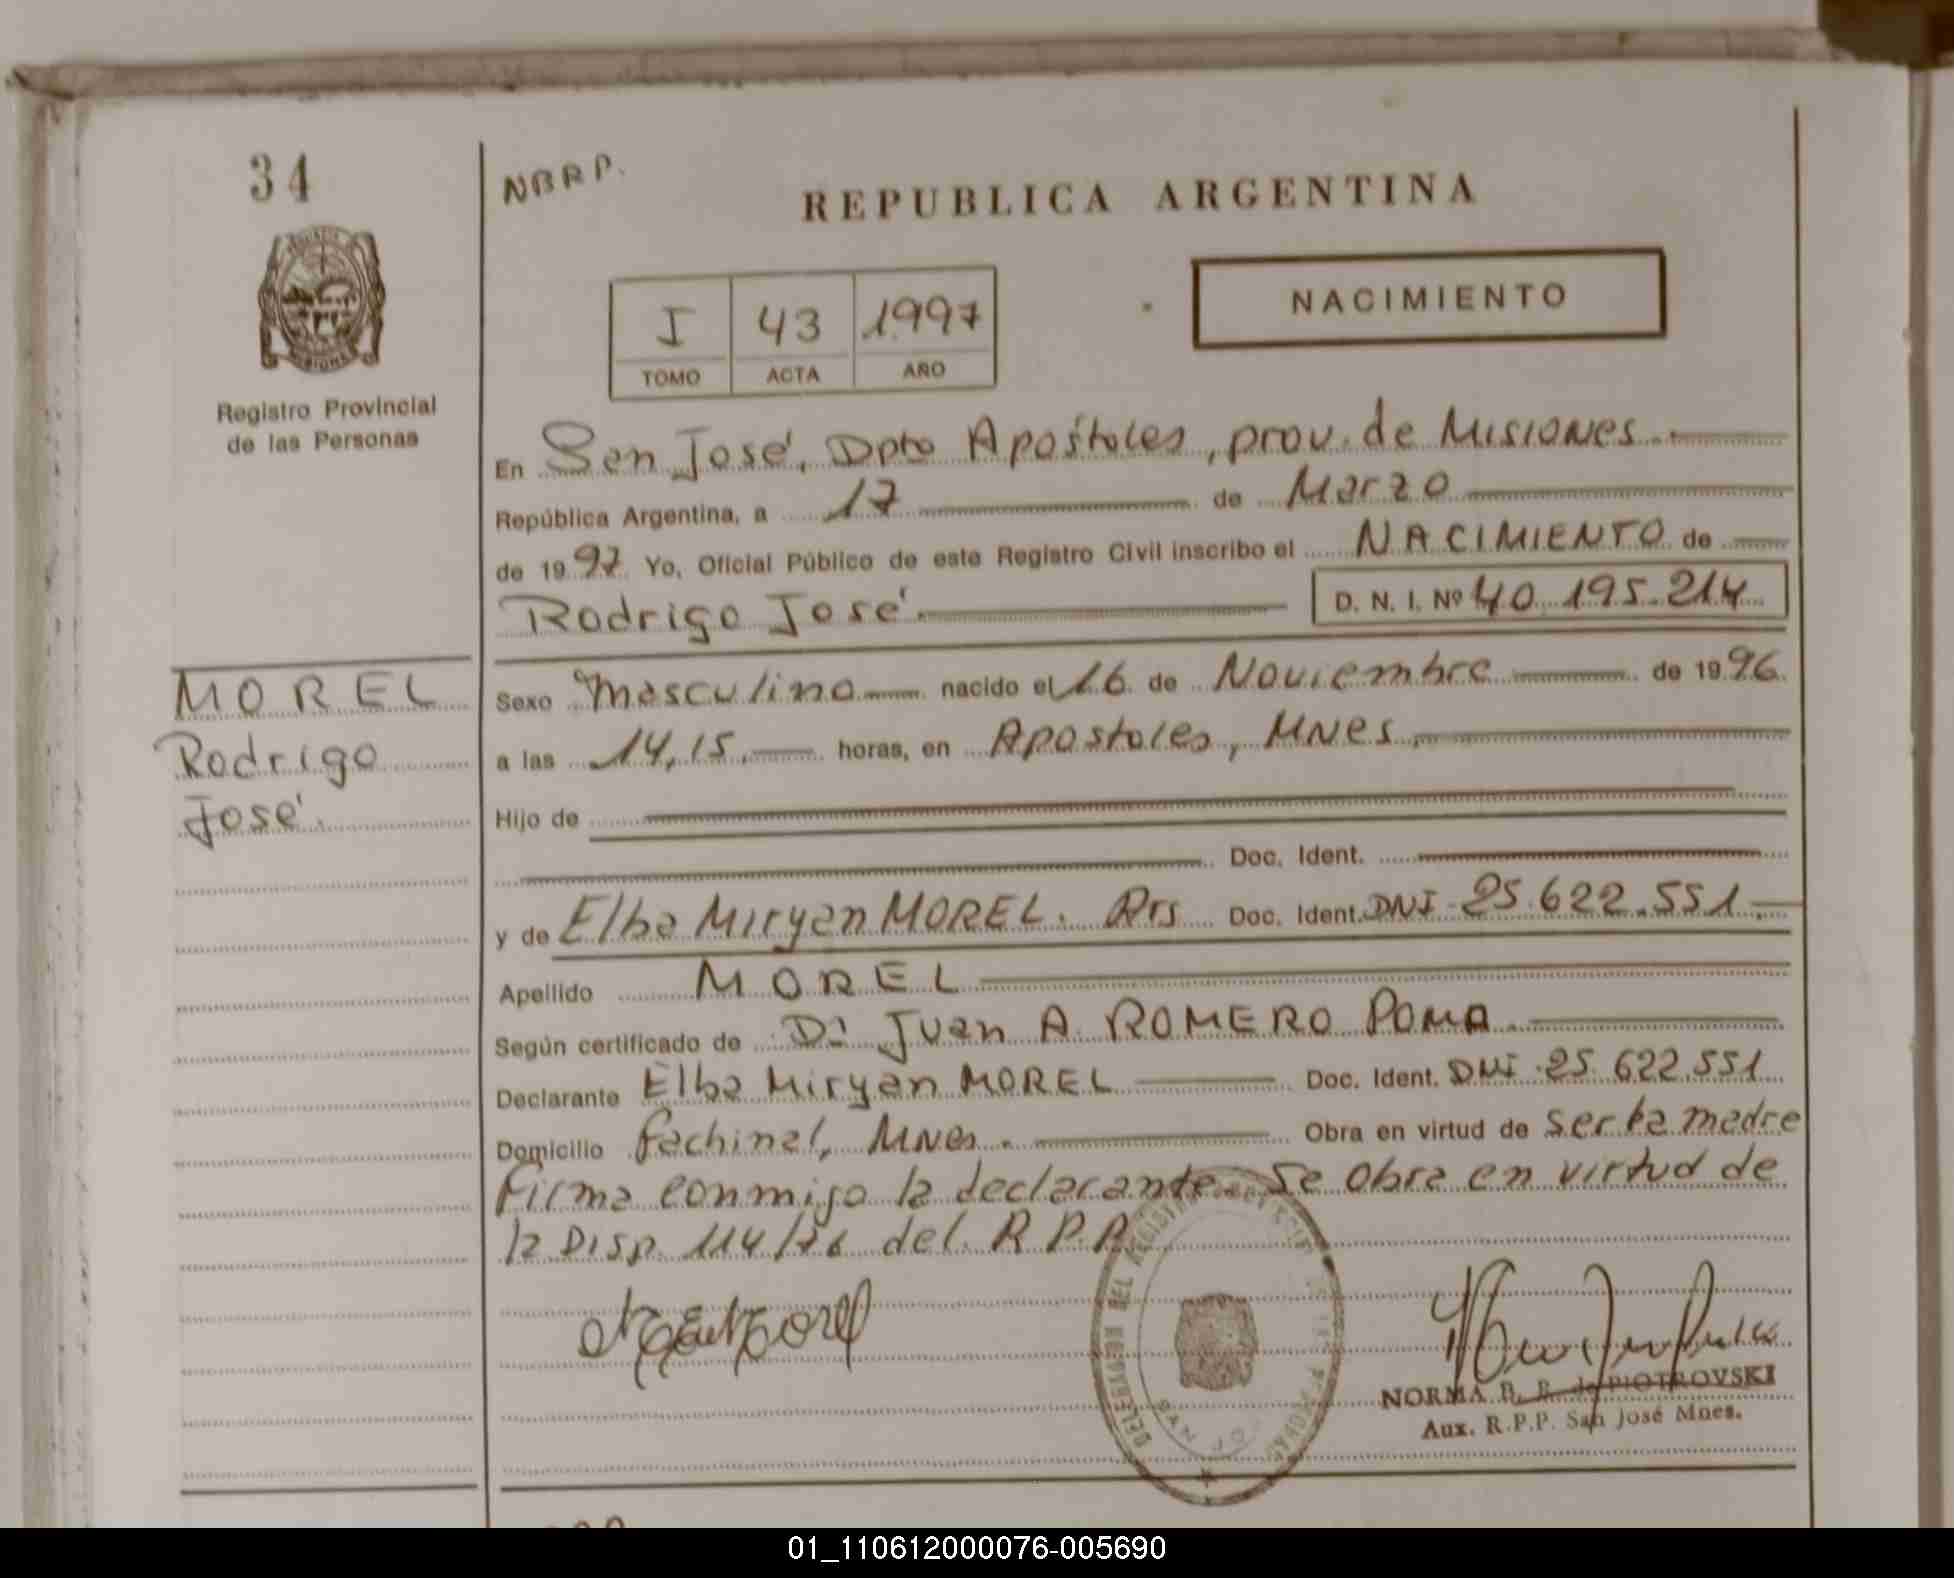 34
NBRP.
REPUBLICA ARGENTINA
NACIMIENTO
I 43 1997
TOMO ACTA AÑO
Registro Provincial
de las Personas
En San José, Dpto Apóstoles, prov. de Misiones.
República Argentina, a 17 de Marzo
de 1997 Yo, Oficial Público de este Registro Civil inscribo el NACIMIENTO de
Rodrigo José. D. N. I. Nº 40.195.214
MOREL
Rodrigo
José.
Sexo Masculino nacido el 16 de Noviembre de 1996
a las 14,15 horas, en Apostoles, MNes.
Hijo de
Doc. Ident.
y de Elba Miryan MOREL. Arg Doc. Ident. DNI 25.622.551.
Apellido MOREL
Según certificado de Dr Juan A. ROMERO POMA.
Declarante Elba Miryan MOREL Doc. Ident. DNI 25.622.551
Domicilio Fachinal, MNes. Obra en virtud de ser la madre
Firma conmigo la declarante. Se obra en virtud de
la Disp. 114/76 del R.P.P.
NORMA B. R. de PIOTROVSKI
Aux. R.P.P. San José Mnes.
01_110612000076-005690